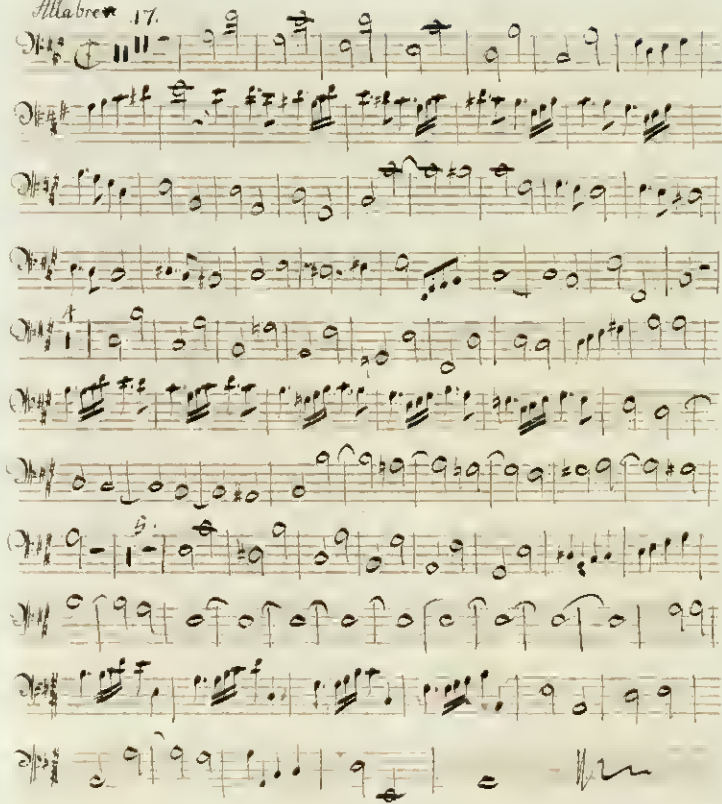 Allabreve 17.
1
5.